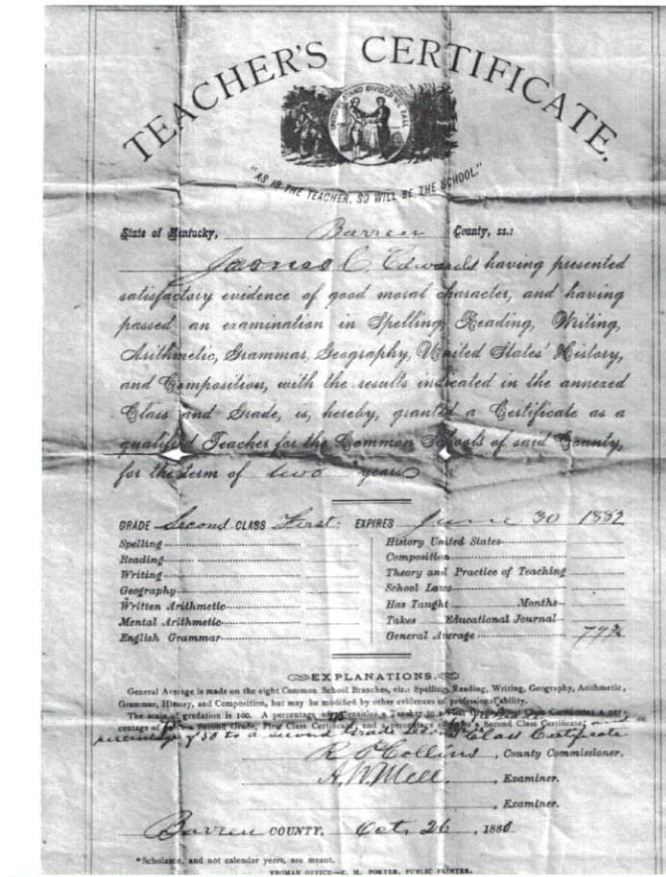 TEACHER'S CERTIFICATE.
UNITED WE STAND DIVIDED WE FALL
"AS IS THE TEACHER, SO WILL BE THE SCHOOL."
State of Kentucky, Barren County, ss.:
James C Edwards having presented
satisfactory evidence of good moral character, and having
passed an examination in Spelling, Reading, Writing,
Arithmetic, Grammar, Geography, United States' History,
and Composition, with the results indicated in the annexed
Class and Grade, is, hereby, granted a Certificate as a
qualified Teacher for the Common Schools of said County,
for the term of two years
GRADE Second CLASS First. EXPIRES June 30 1882
Spelling
Reading
Writing
Geography
Written Arithmetic
Mental Arithmetic
English Grammar
History United States
Composition
Theory and Practice of Teaching
School Laws
Has Taught Months
Takes Educational Journal
General Average 74%
EXPLANATIONS.
General Average is made on the eight Common School Branches, viz.: Spelling, Reading, Writing, Geography, Arithmetic,
Grammar, History, and Composition, but may be modified by other evidences of professional ability.
The scale of gradation is 100. A percentage entitles a Teacher to a Class Certificate; a per-
centage of Second Grade, First Class Certificate; and a percentage of Second Class Certificate; and a
percentage of 50 to a second Grade Class Certificate
R P Collins, County Commissioner.
A. W. Mell, Examiner.
, Examiner.
Barren COUNTY, Oct. 26, 1880
*Scholastic, and not calendar years, are meant.
YEOMAN OFFICE—E. H. PORTER, PUBLIC PRINTER.